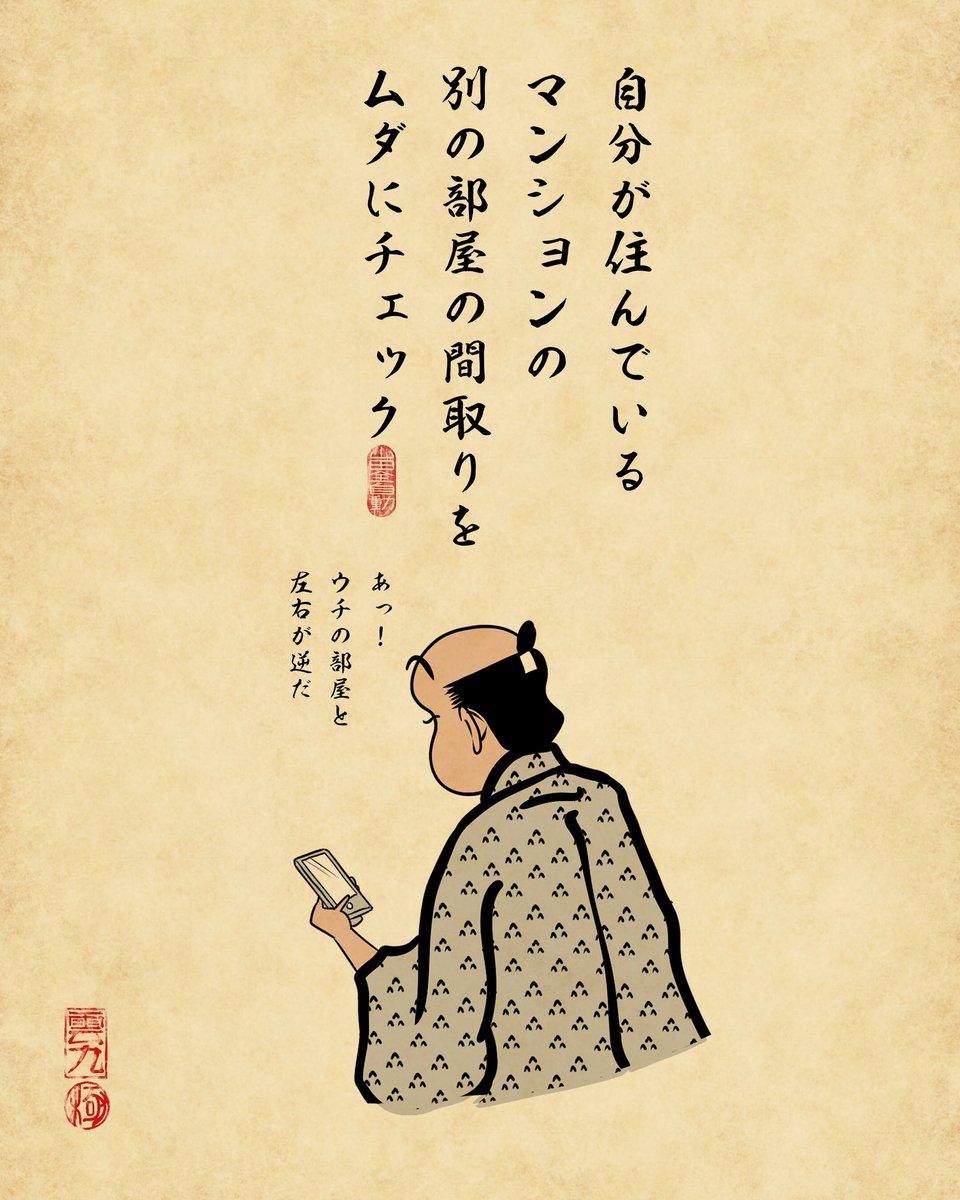 自分が住んでいる
マンションの
別の部屋の間取りを
ムダにチェック
あっ！
ウチの部屋と
左右が逆だ